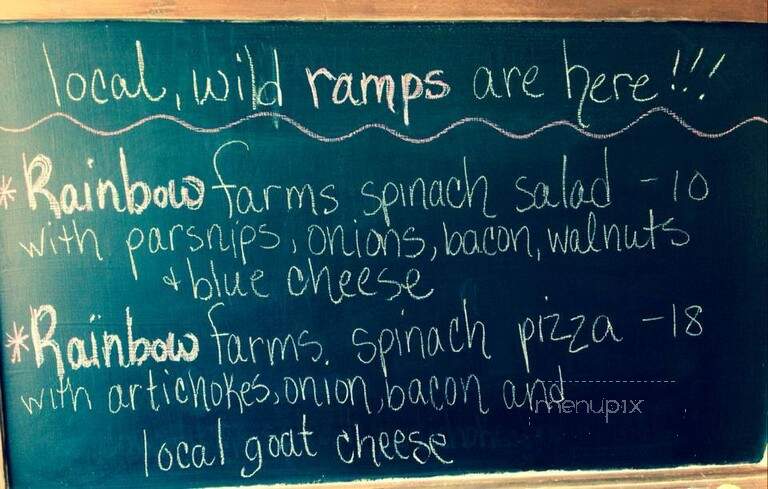 local, wild ramps are here!!!
* Rainbow farms spinach salad - 10
with parsnips, onions, bacon, walnuts
+ blue cheese
* Rainbow farms. spinach pizza - 18
with artichokes, onion, bacon and
menupix
local goat cheese